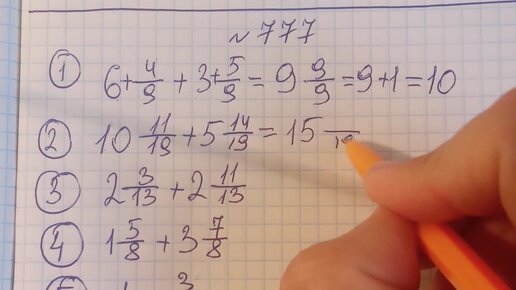 № 777
① 6+4/9 + 3+5/9 = 9 9/9 = 9+1 = 10
② 10 11/19 + 5 14/19 = 15 —/19
③ 2 3/13 + 2 11/13
④ 1 5/8 + 3 7/8